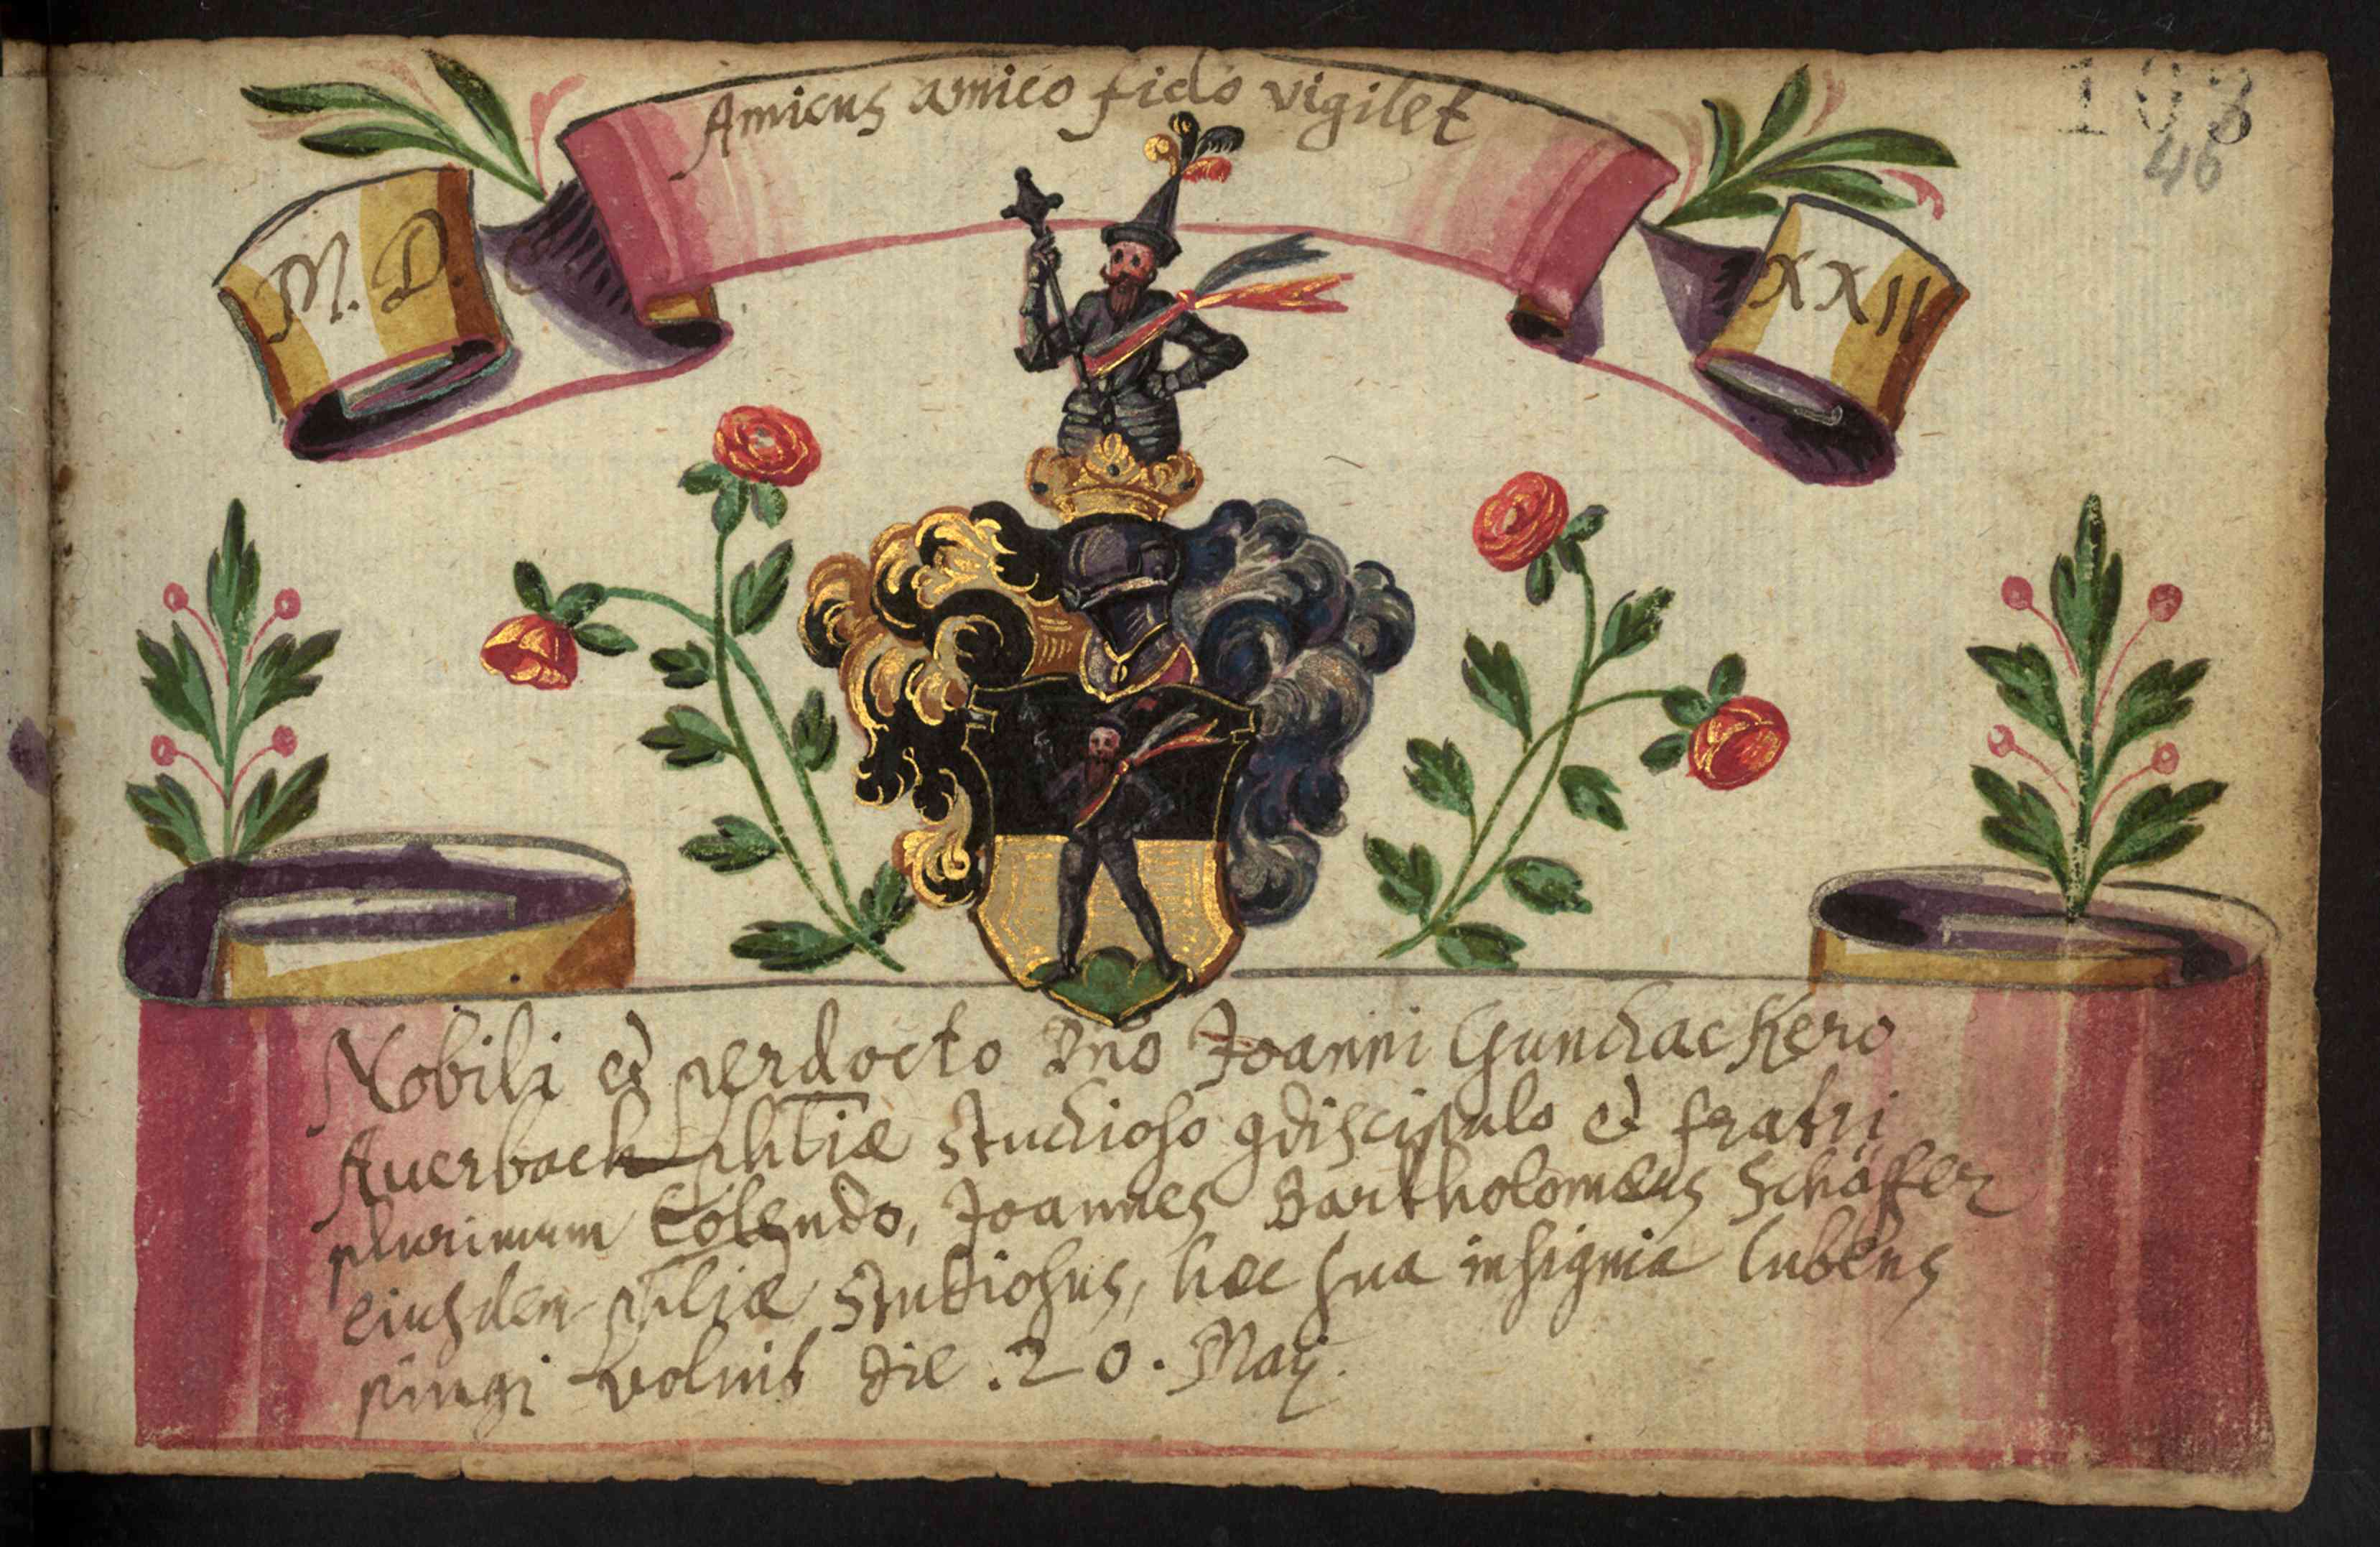 Amicus amico fido vigilet
M. D. C
XXII
103
46
Nobili et perdocto Dno Joanni Gundackero
Auerback phliæ studioso gdiscipulo et fratri
plurimum Colendo, Joannes Bartholomæus Schäffer
eiusdem philiæ Studiosus, hæc sua insignia lubens
pingi voluit die .20. Maij.